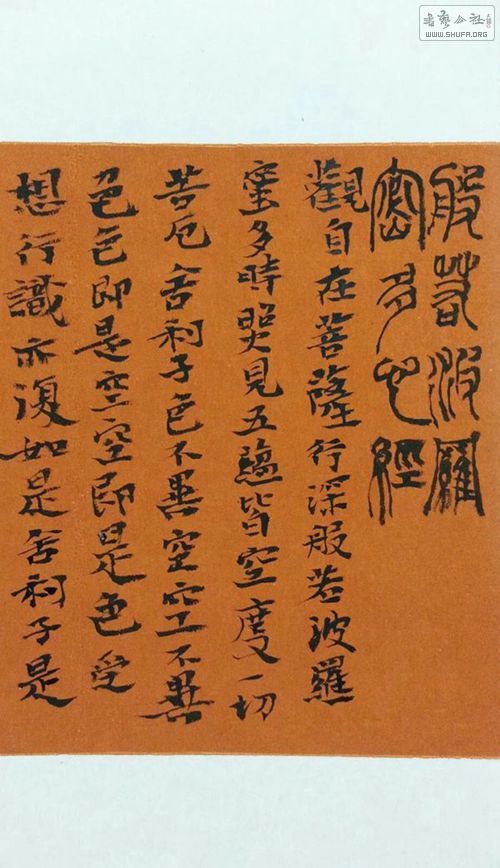 般若波羅
密多心經
觀自在菩薩行深般若波羅
蜜多時照見五蘊皆空度一切
苦厄舍利子色不異空空不異
色色即是空空即是色受
想行識亦復如是舍利子是
書藝公社
WWW.SHUFA.ORG